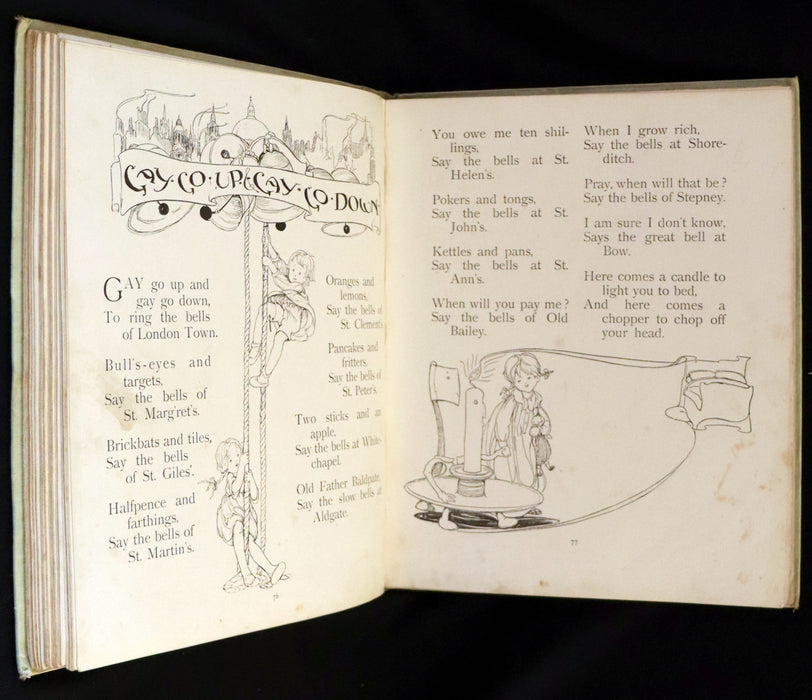 GAY·GO·UP·&·GAY·GO·DOWN·
GAY go up and
gay go down,
To ring the bells
of London Town.
Bull's-eyes and
targets,
Say the bells of
St. Marg'ret's.
Brickbats and tiles,
Say the bells
of St. Giles'.
Halfpence and
farthings,
Say the bells of
St. Martin's.
Oranges and
lemons,
Say the bells of
St. Clement's
Pancakes and
fritters,
Say the bells of
St. Peter's.
Two sticks and an
apple,
Say the bells at White-
chapel.
Old Father Baldpate,
Say the slow bells at
Aldgate.
76
You owe me ten shil-
lings,
Say the bells at St.
Helen's.
Pokers and tongs,
Say the bells at St.
John's.
Kettles and pans,
Say the bells at St.
Ann's.
When will you pay me?
Say the bells of Old
Bailey.
When I grow rich,
Say the bells at Shore-
ditch.
Pray, when will that be?
Say the bells of Stepney.
I am sure I don't know,
Says the great bell at
Bow.
Here comes a candle to
light you to bed,
And here comes a
chopper to chop off
your head.
77